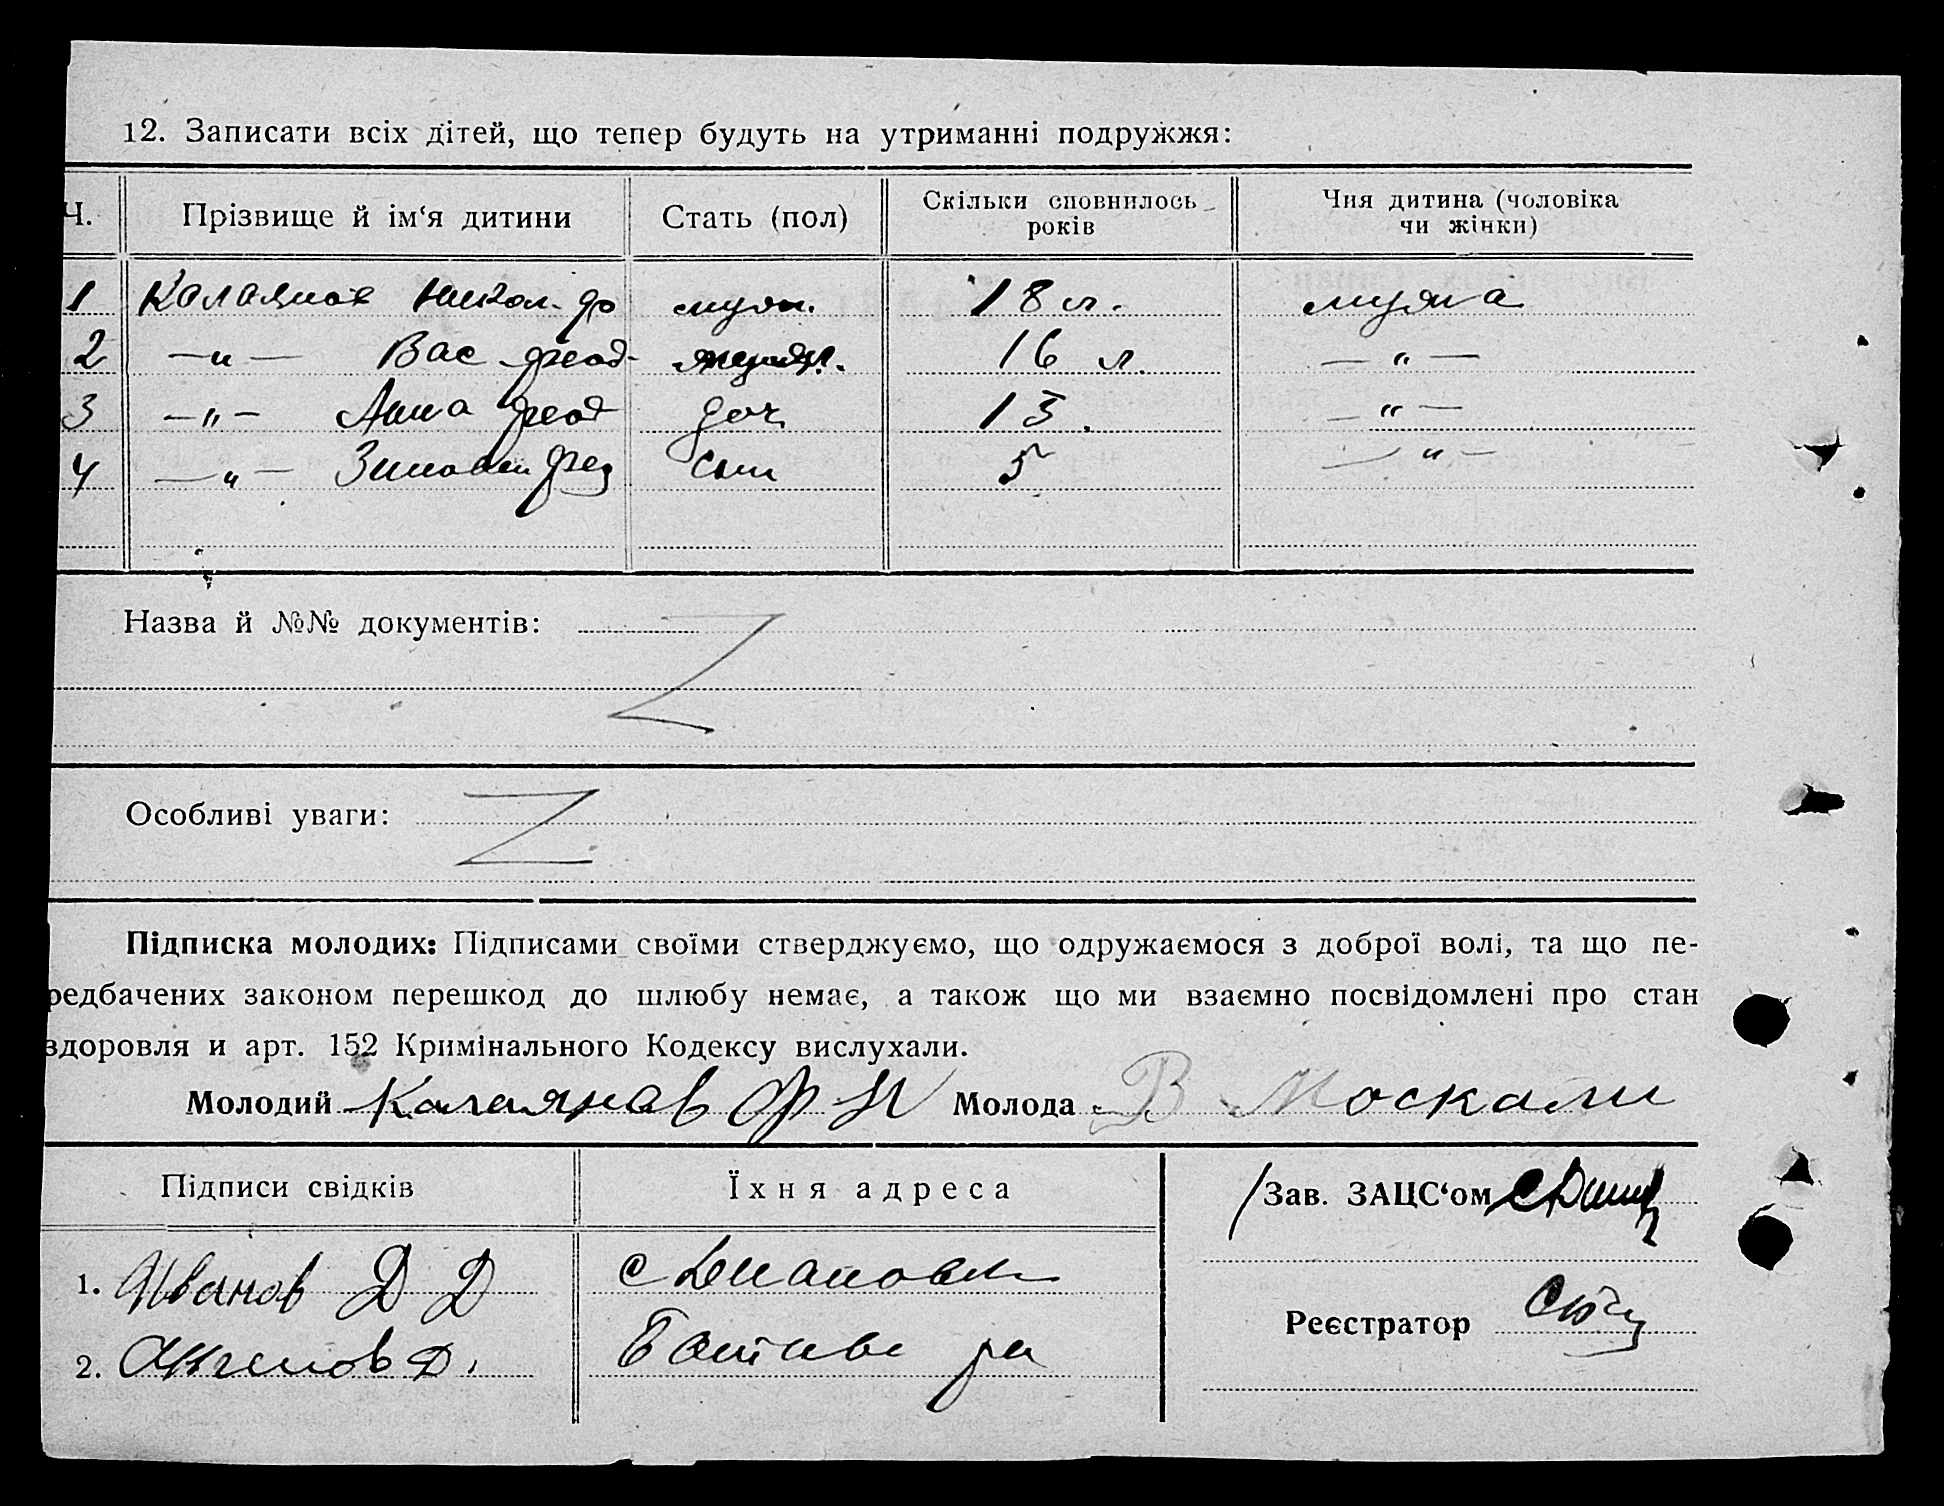 12. Записати всіх дітей, що тепер будуть на утриманні подружжя:
Ч. Прізвище й ім‘я дитини Стать (пол) Скільки сповнилось років Чия дитина (чоловіка чи жінки)
1 Калаянов Никол. Фе муж. 18 л. мужа
2 —„— Вас Феод. 16 л. —„—
3 —„— Анна Феод доч 13. —„—
4 —„— Зиновий Фед сын 5 —„—
Назва й №№ документів:
Особливі уваги:
Підписка молодих: Підписами своїми стверджуємо, що одружаємося з доброї волі, та що пе-
редбачених законом перешкод до шлюбу немає, а також що ми взаємно посвідомлені про стан
здоровля и арт. 152 Кримінального Кодексу вислухали.
Молодий Калаянов Ф Н Молода В Москали
Підписи свідків Їхня адреса /Зав. ЗАЦС‘ом
1. Иванов Д Д с
Реєстратор
2. Ангелов Д. Ботиев ра